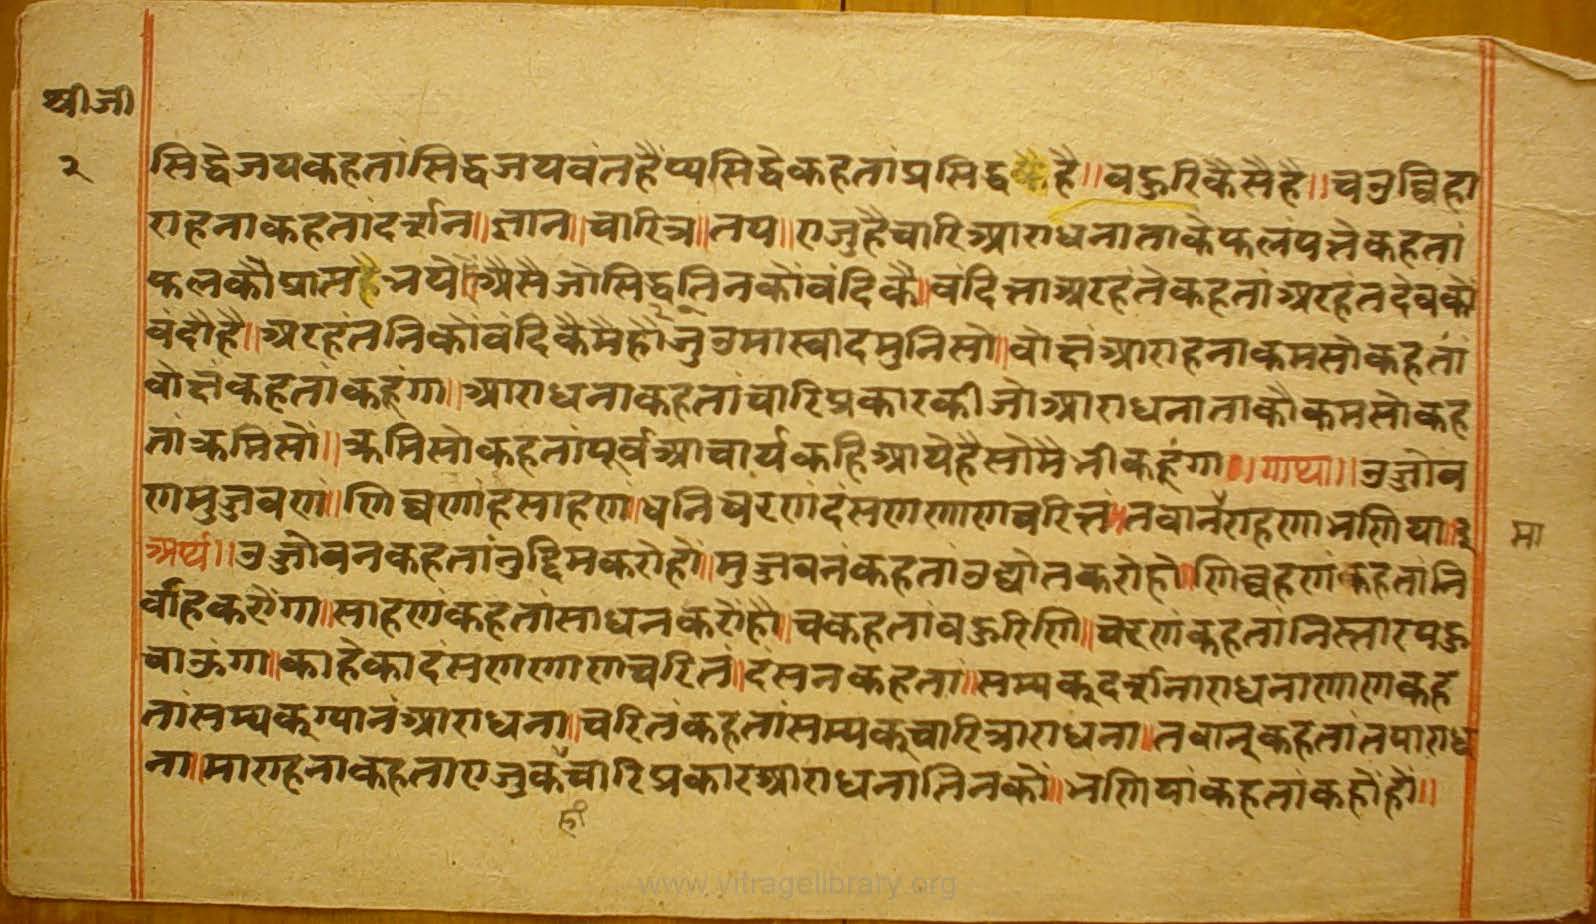 श्रीजी
२
सिद्धेजयकहतांसिद्धजयवंतहैंप्यसिद्धेकहतांप्रसिद्ध है॥बहुरिकैसैहै॥चउव्विहा
राहनाकहतांदर्शन॥ज्ञान॥चारित्र॥तप॥एजुहैचारिआराधनाताकेफलंपत्तेकहतां
फलकौप्राप्तहैभये॥ऐसैजोसिद्धतिनकोंवंदिकै॥वंदित्ताअरहंतेकहतांअरहंतदेवकों
वंदौहै॥अरहंतनिकोंवंदिकैमैहौंजुउमास्वादमुनिसो॥वोछंआराहनाकमसोकहतां
वोछंकहतांकहूंगा॥आराधनाकहतांचारिप्रकारकीजोआराधनाताकौकमसोकह
तांक्रमिसों॥क्रमिसोकहतांपूर्वआचार्यकहिआयेहैसोमैभीकहूंगा॥गाथा॥उज्जोव
णमुज्जवणं॥णिव्वहणंसाहणं॥चनिच्चरणंदंसणणाणचरित्तं॥तवानंराहणाभणिया॥२
मा
अर्थ॥उज्जोवनकहतांनुद्दिमकरोहों॥मुज्जवनंकहतांउद्योतकरोहो॥णिव्वहणंकहतांनि
र्वाहकरोंगा॥साहणंकहतांसाधनकरोहौं॥चकहतांबहुरिणि॥चरणंकहतांनिस्तारपहु
चाऊंगा॥काहेकादंसणणाणचरितं॥दंसनकहतां॥सम्यक्दर्शनाराधनाणाणकह
तांसम्यक्ग्यानंआराधना॥चरितंकहतांसम्यक्चारित्राराधना॥तवानंकहतांतपाराध
ना॥माराहनाकहताएजुकैचारिप्रकारआराधनातिनकों॥भणियाकहतांकहोंहों॥
ही
www.vitragelibrary.org